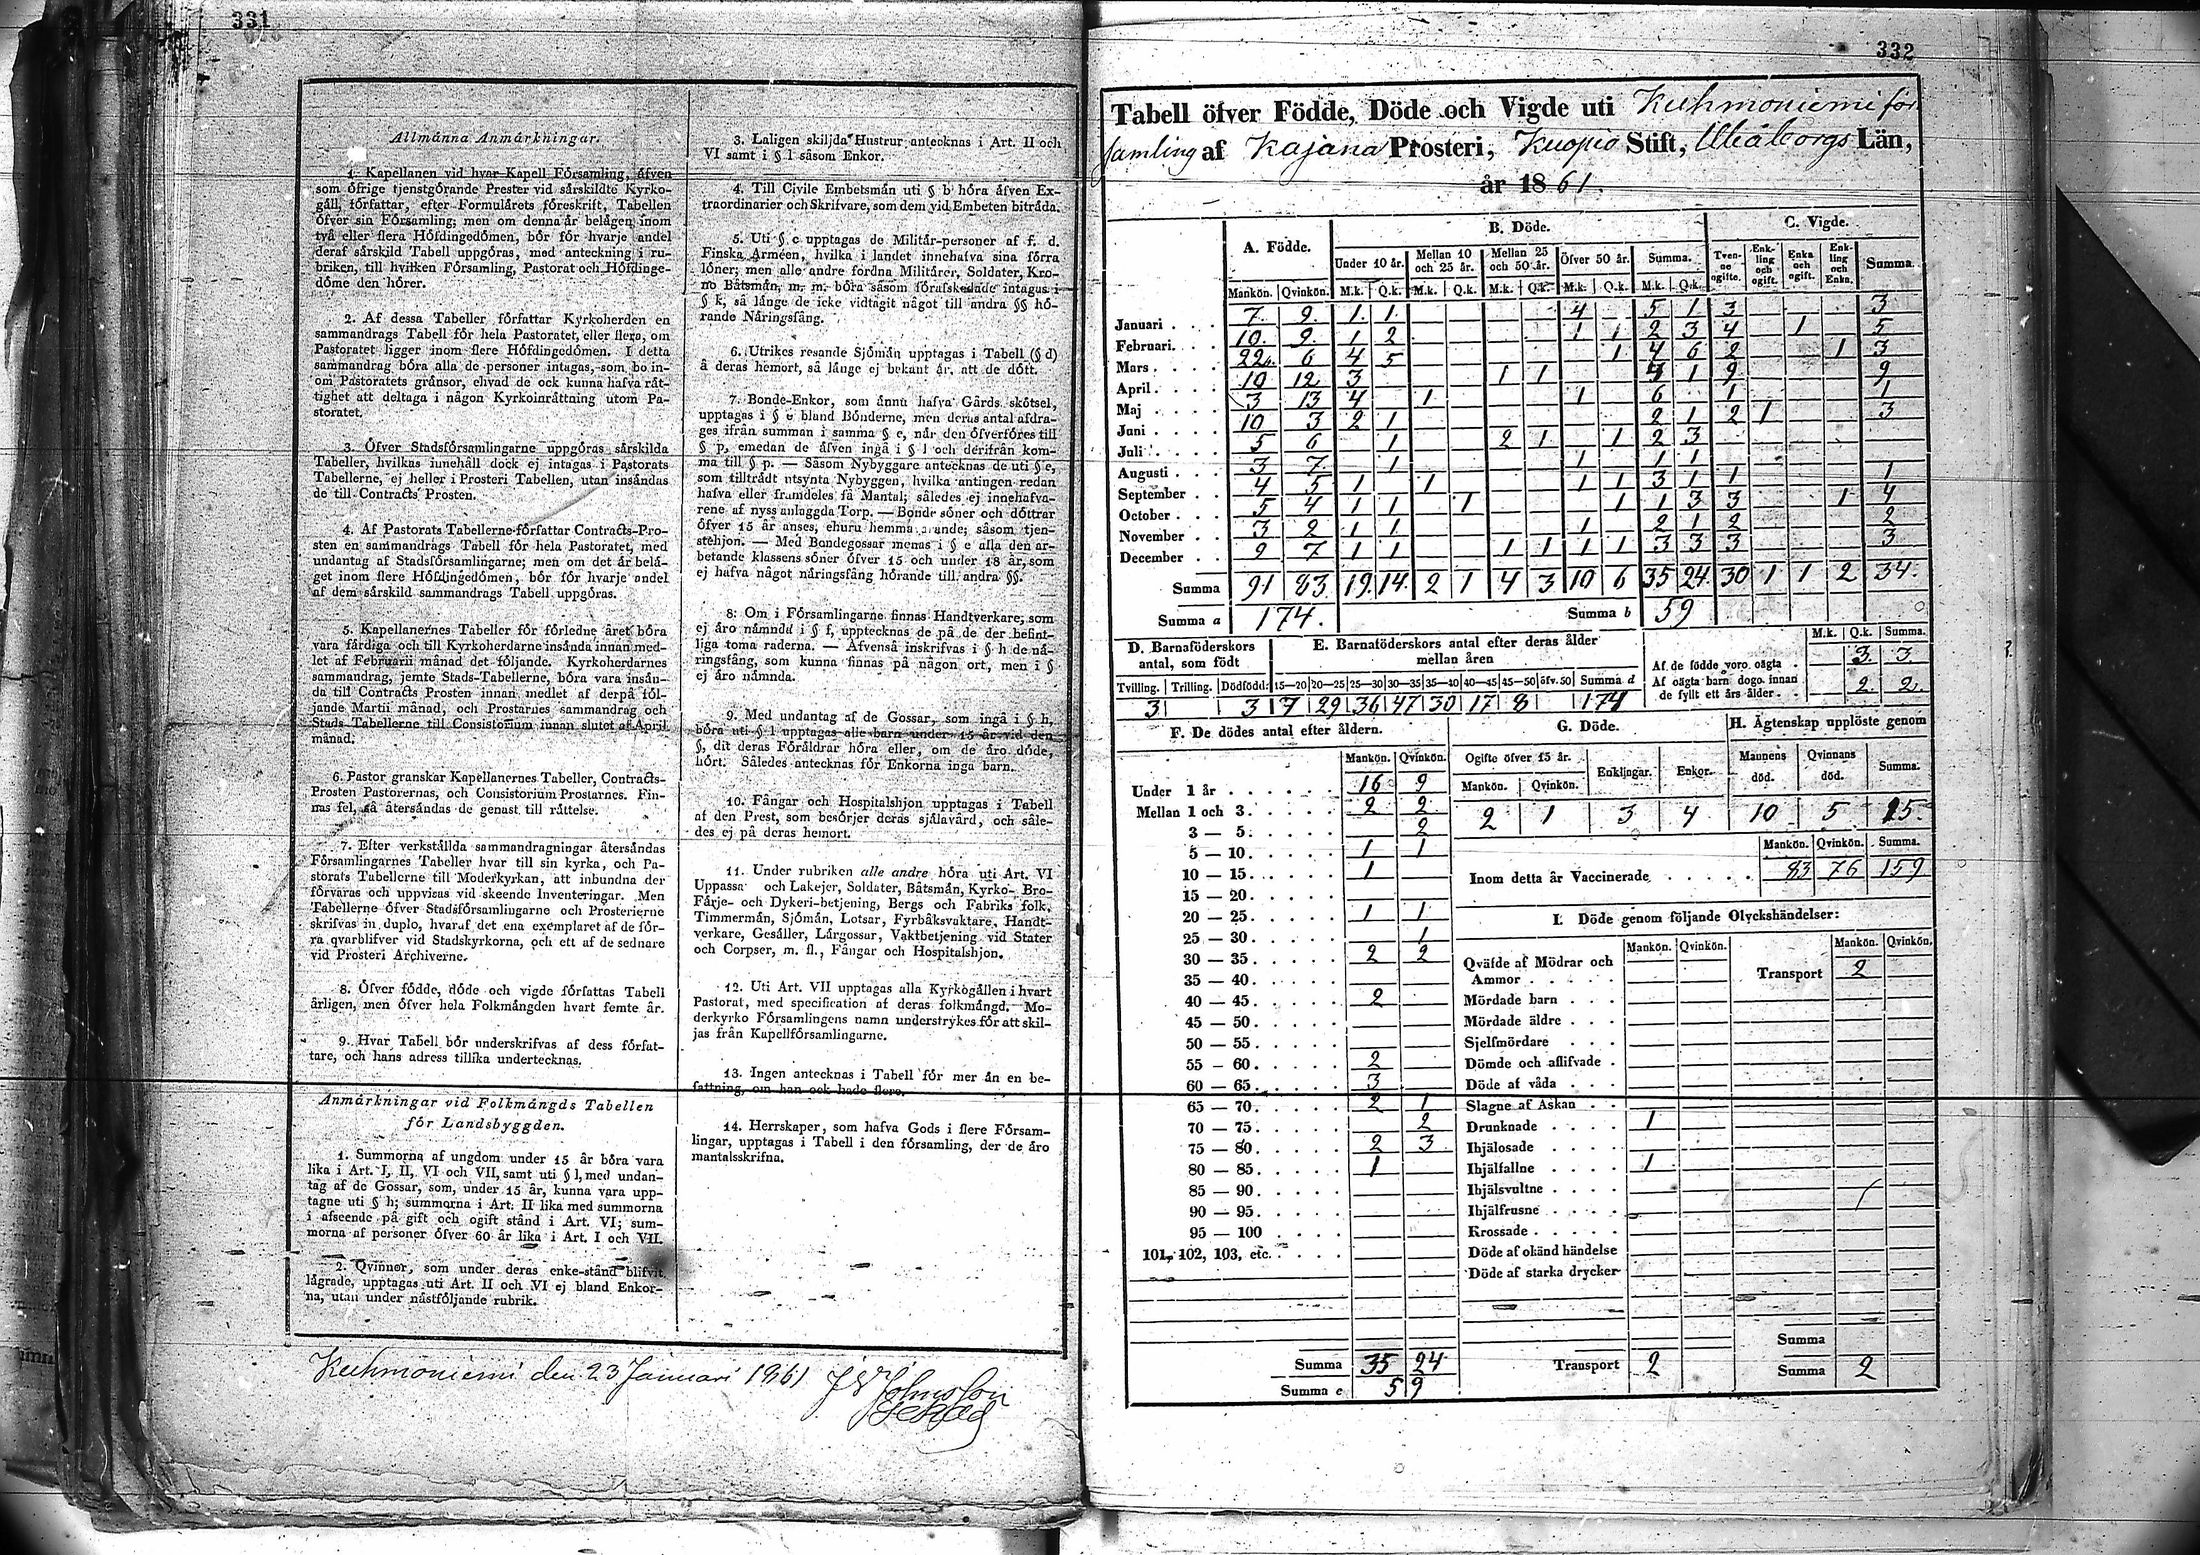 331
Allmánna Anmárkningar.
1. Kapellanen vid hvar Kapell Fórsamling, áfven
som ófrige tjenstgórande Prester vid sárskildte Kyrko-
gáll, fórfattar, efter Formulårets fóreskrift, Tabellen
ófver sin Fórsamling; men om denna år belågen inom
två eller flera Hófdingedómen, bór fór hvarje andel
deraf sårskild Tabell uppgóras, med anteckning i ru-
briken, till hvilken Fórsamling, Pastorat och Hófdinge-
dóme den hórer.
2. Af dessa Tabeller fórfattar Kyrkoherden en
sammandrags Tabell fór hela Pastoratet, eller flera, om
Pastoratet ligger inom flere Hófdingedómen. I detta
sammandrag bóra alla de personer intagas, som bo in-
om Pastoratets grånsor, ehvad de ock kunna hafva råt-
tighet att deltaga i någon Kyrkoinråttning utom Pa-
storatet.
3. Ófver Stadsfórsamlingarne uppgóras sårskilda
Tabeller, hvilkas innehåll dock ej intagas i Pastorats
Tabellerne, ej heller i Prosteri Tabellen, utan insåndas
de till Contracts Prosten.
4. Af Pastorats Tabellerne fórfattar Contracts-Pro-
sten en sammandrags Tabell fór hela Pastoratet, med
undantag af Stadsfórsamlingarne; men om det år belå-
get inom flere Hófdingedómen, bór fór hvarje andel
af dem sårskild sammandrags Tabell uppgóras.
5. Kapellanernes Tabeller fór fórledne året bóra
vara fårdiga och till Kyrkoherdarne insånda innan med-
let af Februarii månad det fóljande. Kyrkoherdarnes
sammandrag, jemte Stads-Tabellerne, bóra vara insån-
da till Contracts Prosten innan medlet af derpå fól-
jande Martii månad, och Prostarnes sammandrag och
Stads Tabellerne till Consistorium innan slutet af April
månad.
6. Pastor granskar Kapellanernes Tabeller, Contracts-
Prosten Pastorernas, och Consistorium Prostarnes. Fin-
nas fel, så återsåndas de genast till råttelse.
7. Efter verkstållda sammandragningar återsåndas
Fórsamlingarnes Tabeller hvar till sin kyrka, och Pa-
storats Tabellerne till Moderkyrkan, att inbundna der
fórvaras och uppvisas vid skeende Inventeringar. Men
Tabellerne ófver Stadsfórsamlingarne och Prosterierne
skrifvas in duplo, hvaraf det ena exemplaret af de fór-
ra qvarblifver vid Stadskyrkorna, och ett af de sednare
vid Prosteri Archiverne.
8. Ófver fódde, dóde och vigde fórfattas Tabell
årligen, men ófver hela Folkmångden hvart femte år.
9. Hvar Tabell bór underskrifvas af dess fórfat-
tare, och hans adress tillika undertecknas.
Anmárkningar vid Folkmångds Tabellen
fór Landsbyggden.
1. Summorna af ungdom under 15 år bóra vara
lika i Art. I, II, VI och VII, samt uti § l, med undan-
tag af de Gossar, som, under 15 år, kunna vara upp-
tagne uti § h; summorna i Art. II lika med summorna
i afseende på gift och ogift stånd i Art. VI; sum-
morna af personer ófver 60 år lika i Art. I och VII.
2. Qvinnor, som under deras enke-stånd blifvit
lågrade, upptagas uti Art. II och VI ej bland Enkor-
na, utan under nåstfóljande rubrik.
3. Laligen skiljda Hustrur antecknas i Art. II och
VI samt i § l såsom Enkor.
4. Till Civile Embetsmån uti § b hóra åfven Ex-
traordinarier och Skrifvare, som dem vid Embeten bitråda.
5. Uti § c upptagas de Militår-personer af f. d.
Finska Arméen, hvilka i landet innehafva sina fórra
lóner; men alle andre fordna Militårer, Soldater, Kro-
no Båtsmån, m. m. bóra såsom fórafskedade intagas i
§ k, så långe de icke vidtagit något till andra §§ hó-
rande Nåringsfång.
6. Utrikes resande Sjómån upptagas i Tabell (§ d)
å deras hemort, så långe ej bekant år, att de dótt.
7. Bonde-Enkor, som ånnu hafva Gårds skótsel,
upptagas i § e bland Bónderne, men deras antal afdra-
ges ifrån summan i samma § e, når den ófverfóres till
§ p, emedan de åfven ingå i § l och derifrån kom-
ma till § p. — Såsom Nybyggare antecknas de uti § e,
som tilltrådt utsynta Nybyggen, hvilka antingen redan
hafva eller framdeles få Mantal; således ej innehafva-
rene af nyss anlaggda Torp. — Bonde sóner och dóttrar
ófver 15 år anses, ehuru hemma varande; såsom tjen-
stehjon. — Med Bondegossar menas i § e alla den ar-
betande klassens sóner ófver 15 och under 18 år, som
ej hafva något nåringsfång hórande till andra §§.
8. Om i Fórsamlingarne finnas Handtverkare, som
ej åro nåmndd i § f, upptecknas de på de der befint-
liga toma raderna. — Åfvenså inskrifvas i § h de nå-
ringsfång, som kunna finnas på någon ort, men i §
ej åro nåmnda.
9. Med undantag af de Gossar, som ingå i § h,
bóra uti § l upptagas alle barn under 15 år vid den
§, dit deras Fóråldrar hóra eller, om de åro dóde,
hórt. Således antecknas fór Enkorna inga barn.
10. Fångar och Hospitalshjon upptagas i Tabell
af den Prest, som besórjer deras sjålavård, och såle-
des ej på deras hemort.
11. Under rubriken alle andre hóra uti Art. VI
Uppassa och Lakejer, Soldater, Båtsmån, Kyrko- Bro-
Fårje- och Dykeri-betjening, Bergs och Fabriks folk,
Timmermån, Sjómån, Lotsar, Fyrbåksvaktare, Handt-
verkare, Gesåller, Lårgossar, Vaktbetjening vid Stater
och Corpser, m. fl., Fångar och Hospitalshjon.
12. Uti Art. VII upptagas alla Kyrkogållen i hvart
Pastorat, med specification af deras folkmångd. Mo-
derkyrko Fórsamlingens namn understrykes fór att skil-
jas från Kapellfórsamlingarne.
13. Ingen antecknas i Tabell fór mer ån en be-
fattning, om han ock hade flere.
14. Herrskaper, som hafva Gods i flere Fórsam-
lingar, upptagas i Tabell i den fórsamling, der de åro
mantalsskrifna.
Kuhmoniemi den 23 Januari 1861
332
Tabell öfver Födde, Döde och Vigde uti Kuhmoniemi för
samling af Kajana Prosteri, Kuopio Stift, Uleåborgs Län,
år 1861.
A. Födde. B. Döde. C. Vigde.
Under 10 år. Mellan 10 och 25 år. Mellan 25 och 50 år. Öfver 50 år. Summa. Tvenne ogifte. Enkling och ogift. Enka och ogift. Enkling och Enka. Summa.
Mankön. Qvinkön. M.k. Q.k. M.k. Q.k. M.k. Q.k. M.k. Q.k. M.k. Q.k.
Januari 7 9 1 1 4 5 1 3 3
Februari 10 9 1 2 1 1 2 3 4 1 5
Mars 22 6 4 5 1 4 6 2 1 3
April 10 12 3 1 1 4 1 9 9
Maj 3 13 4 1 1 6 1 1
Juni 10 3 2 1 2 1 2 1 3
Juli 5 6 1 2 1 1 2 3
Augusti 3 7 1 1 1 1
September 4 5 1 1 1 1 3 1 1 1
October 5 4 1 1 1 1 1 3 3 1 4
November 3 2 1 1 1 2 1 2 2
December 9 7 1 1 1 1 1 1 3 3 3 3
Summa 91 83 19 14 2 1 4 3 10 6 35 24 30 1 1 2 34
Summa a 174. Summa b 59
D. Barnaföderskors antal, som födt
Tvilling. Trilling. Dödfödd:
3 3
E. Barnaföderskors antal efter deras ålder mellan åren
15—20 20—25 25—30 30—35 35—40 40—45 45—50 öfv. 50 Summa d
7 29 36 47 30 17 8 174
M.k. Q.k. Summa.
Af de födde voro oägta 3. 3.
Af oägta barn dogo innan
de fyllt ett års ålder 2. 2.
F. De dödes antal efter åldern.
Mankön. Qvinkön.
Under 1 år 16 9
Mellan 1 och 3 2 2
3 — 5 2
5 — 10 1 1
10 — 15 1
15 — 20
20 — 25 1 1
25 — 30 1
30 — 35 2 2
35 — 40
40 — 45 2
45 — 50
50 — 55
55 — 60 2
60 — 65 3
65 — 70 2 1
70 — 75 2
75 — 80 2 3
80 — 85 1
85 — 90
90 — 95
95 — 100
101, 102, 103, etc.
Summa 35 24
Summa c 59
G. Döde.
Ogifte öfver 15 år. Enklingar. Enkor.
Mankön. Qvinkön.
2 1 3 4
H. Ägtenskap upplöste genom
Mannens död. Qvinnans död. Summa.
10 5 15
Mankön. Qvinkön. Summa.
Inom detta år Vaccinerade 83 76 159
I. Döde genom följande Olyckshändelser:
Mankön. Qvinkön. Mankön. Qvinkön.
Qväfde af Mödrar och
Ammor
Transport 2
Mördade barn
Mördade äldre
Sjelfmördare
Dömde och aflifvade
Döde af våda
Slagne af Åskan
Drunknade 1
Ihjälosade
Ihjälfallne 1
Ihjälsvultne
Ihjälfrusne
Krossade
Döde af okänd händelse
Döde af starka drycker
Summa
Transport 2 Summa 2